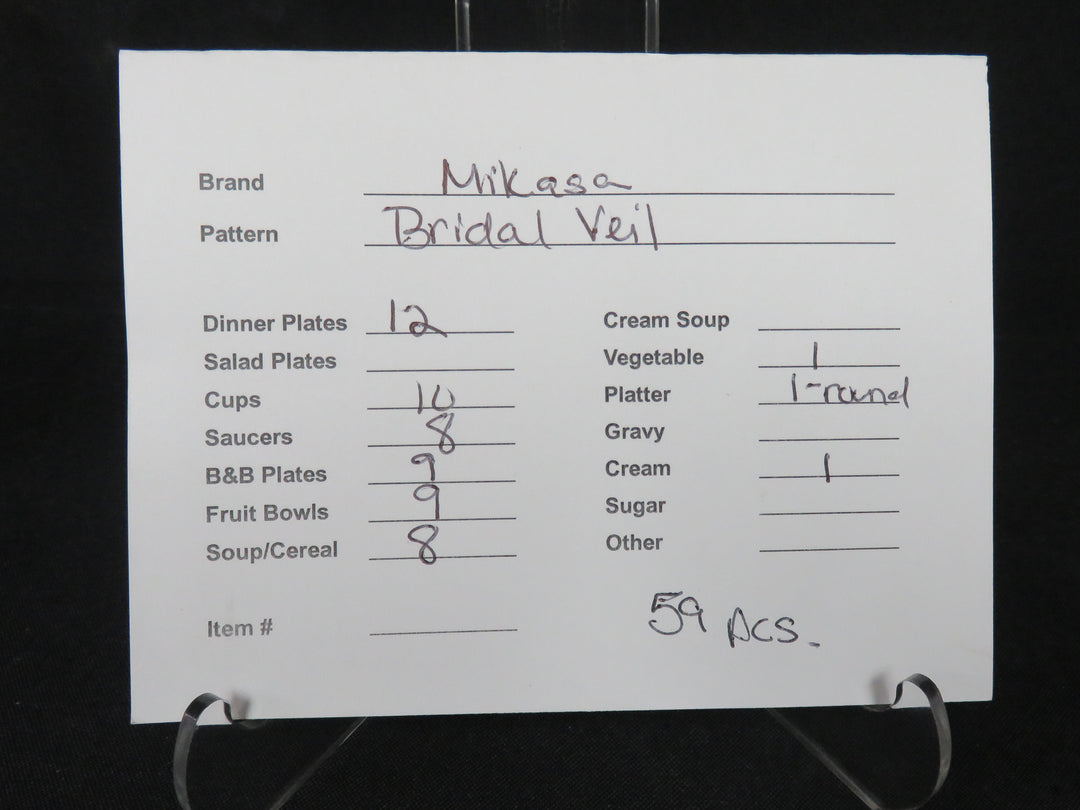 Brand Mikasa
Pattern Bridal Veil
Dinner Plates 12
Salad Plates
Cups 10
Saucers 8
B&B Plates 9
Fruit Bowls 9
Soup/Cereal 8
Item #
Cream Soup
Vegetable 1
Platter 1-round
Gravy
Cream 1
Sugar
Other
59 pcs.